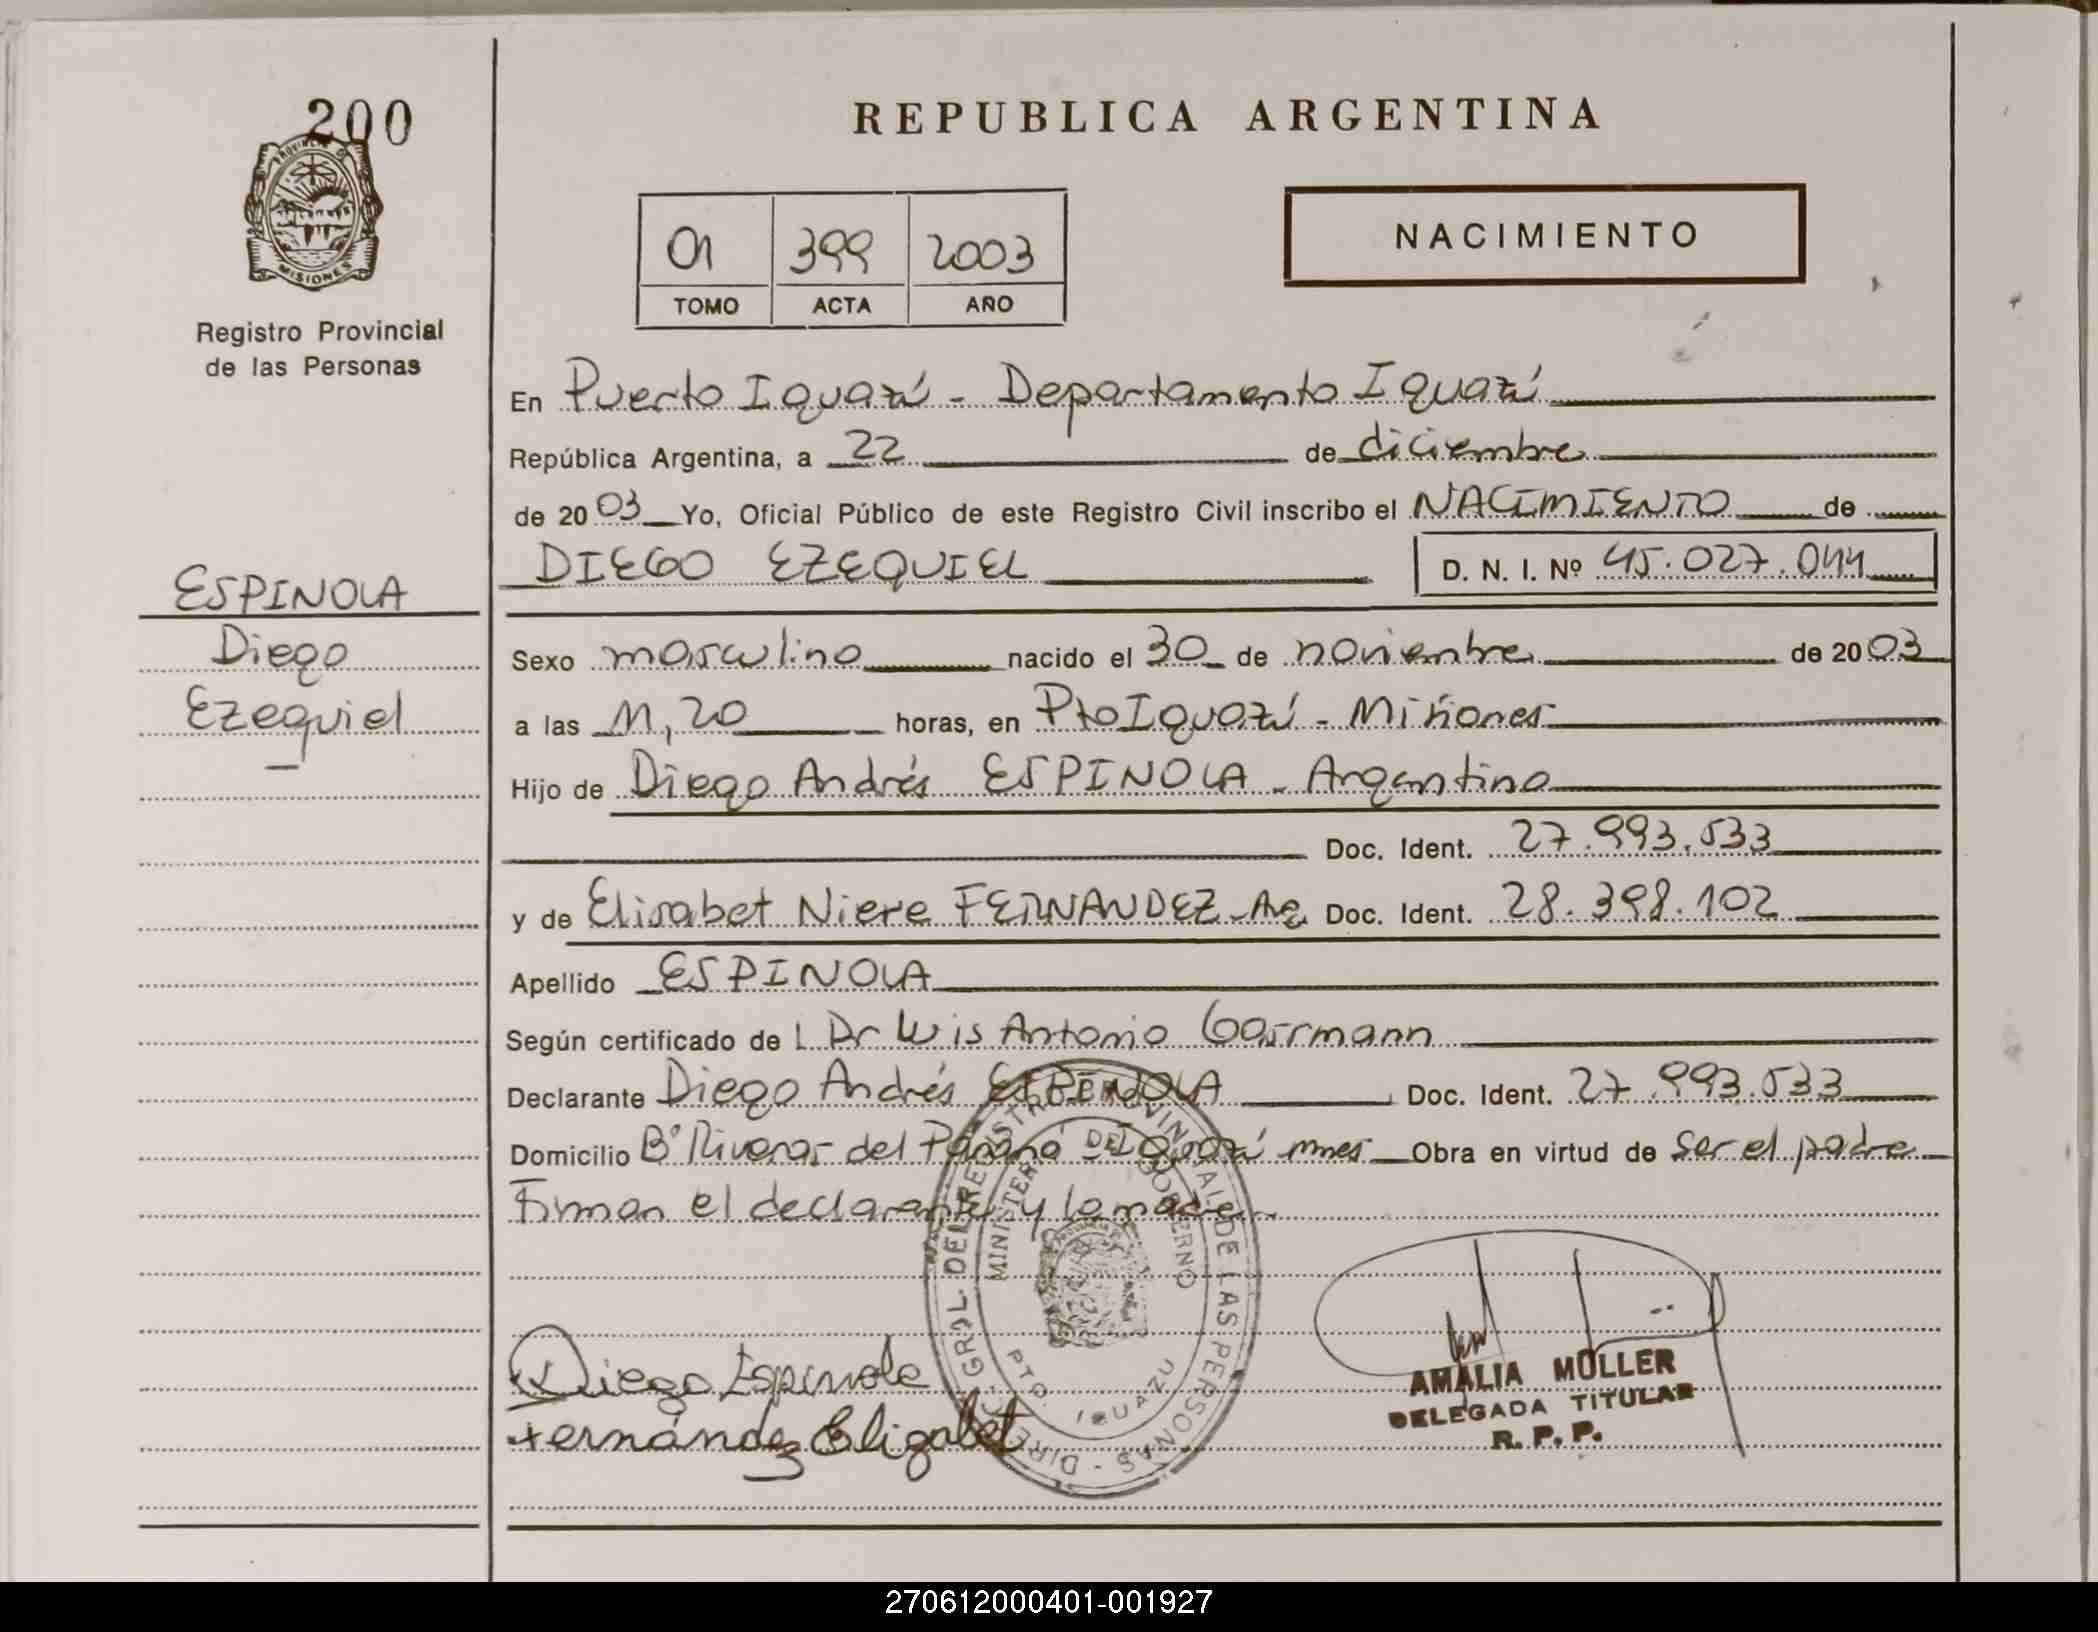 200
PROVINCIA DE
MISIONES
Registro Provincial
de las Personas
ESPINOLA
Diego
Ezequiel
REPUBLICA ARGENTINA
01 399 2003
TOMO ACTA AÑO
NACIMIENTO
En Puerto Iguazú - Departamento Iguazú
República Argentina, a 22 de diciembre
de 2003 Yo, Oficial Público de este Registro Civil inscribo el NACIMIENTO de
DIEGO EZEQUIEL D. N. I. Nº 45.027.044
Sexo masculino nacido el 30 de noviembre de 2003
a las 11,20 horas, en Pto Iguazú - Misiones
Hijo de Diego Andrés ESPINOLA - Argentino
Doc. Ident. 27.993.533
y de Elisabet Niere FERNANDEZ - Arg. Doc. Ident. 28.398.102
Apellido ESPINOLA
Según certificado de l Dr Luis Antonio Gassmann
Declarante Diego Andrés ESPINOLA Doc. Ident. 27.993.533
Domicilio Bº Riveras del Paraná - Iguazú mnes Obra en virtud de Ser el padre
Firman el declarante y la madre.
DIREC. GRAL. DEL REGISTRO PROVINCIAL DE LAS PERSONAS
MINISTERIO DEL GOBIERNO
PTO. IGUAZU
Diego Espinola
Fernández Elizabet
AMALIA MÜLLER
DELEGADA TITULAR
R. P. P.
270612000401-001927